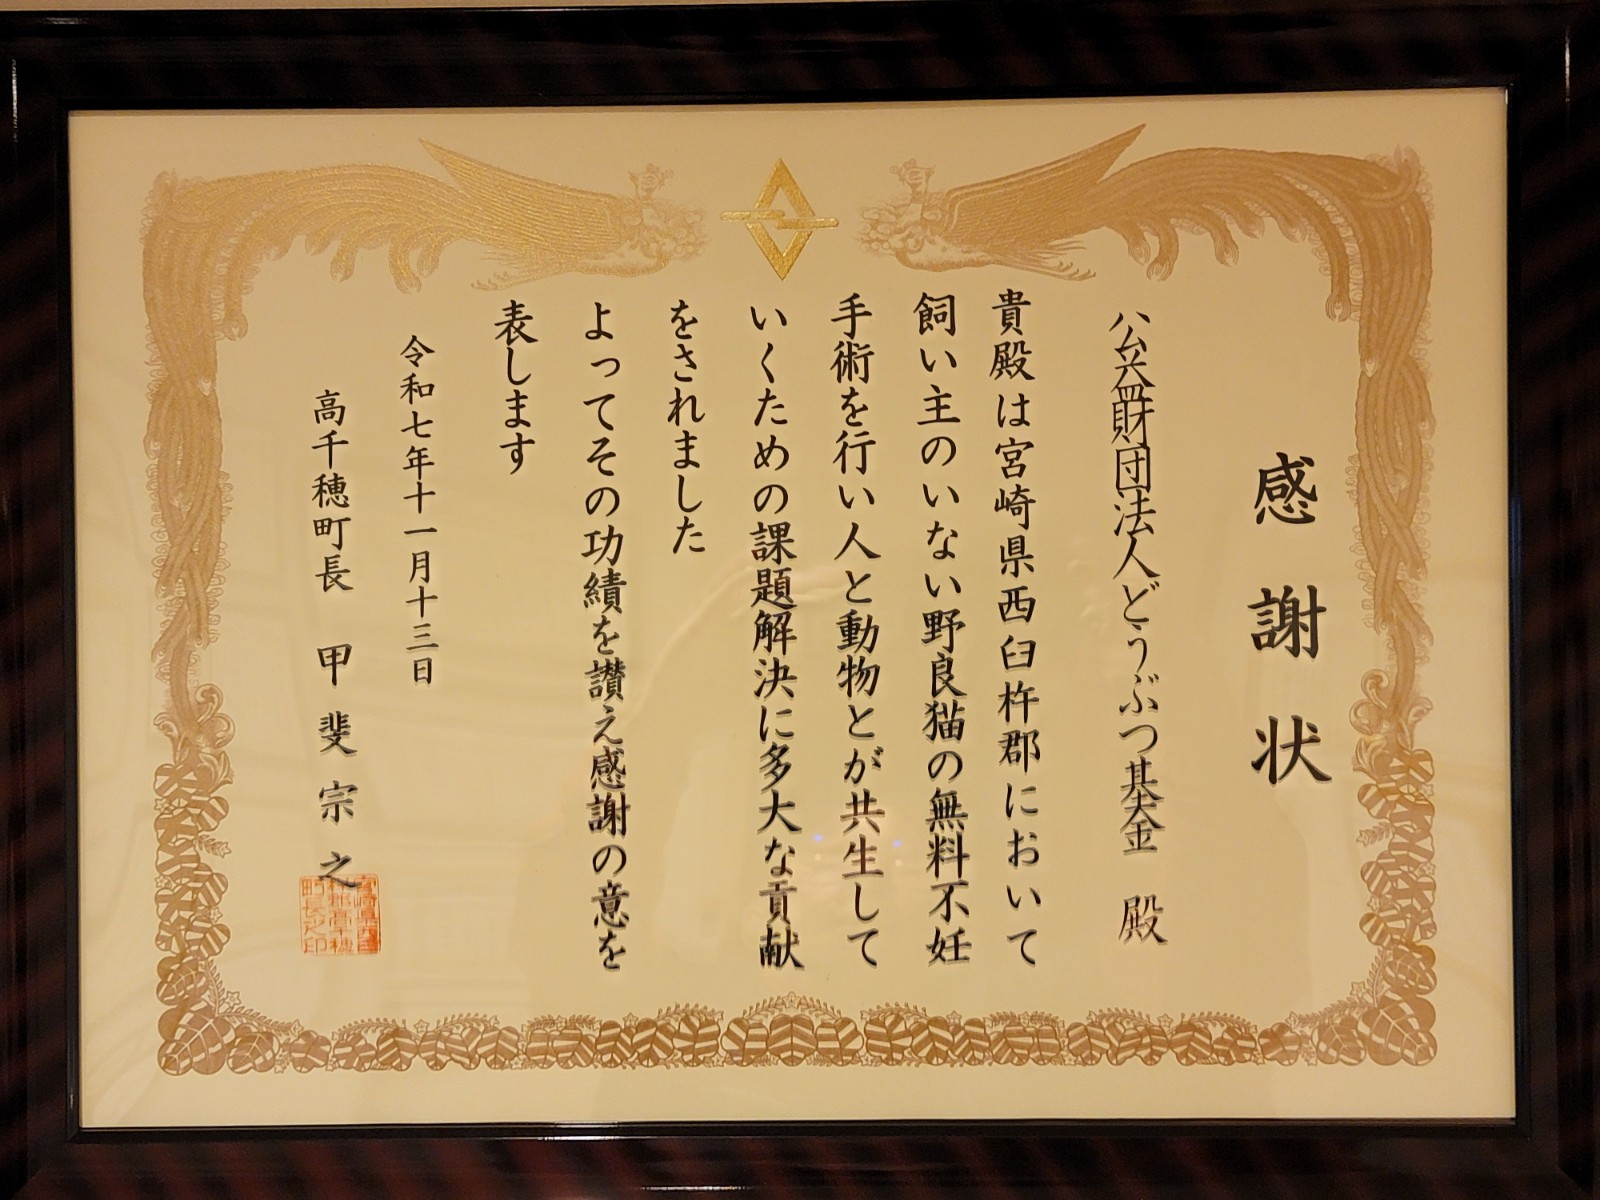 感謝状
公益財団法人どうぶつ基金　殿
貴殿は宮崎県西臼杵郡において
飼い主のいない野良猫の無料不妊
手術を行い人と動物とが共生して
いくための課題解決に多大な貢献
をされました
よってその功績を讃え感謝の意を
表します
令和七年十一月十三日
高千穂町長　甲斐宗之
宮崎県西臼
杵郡高千穂
町長之印